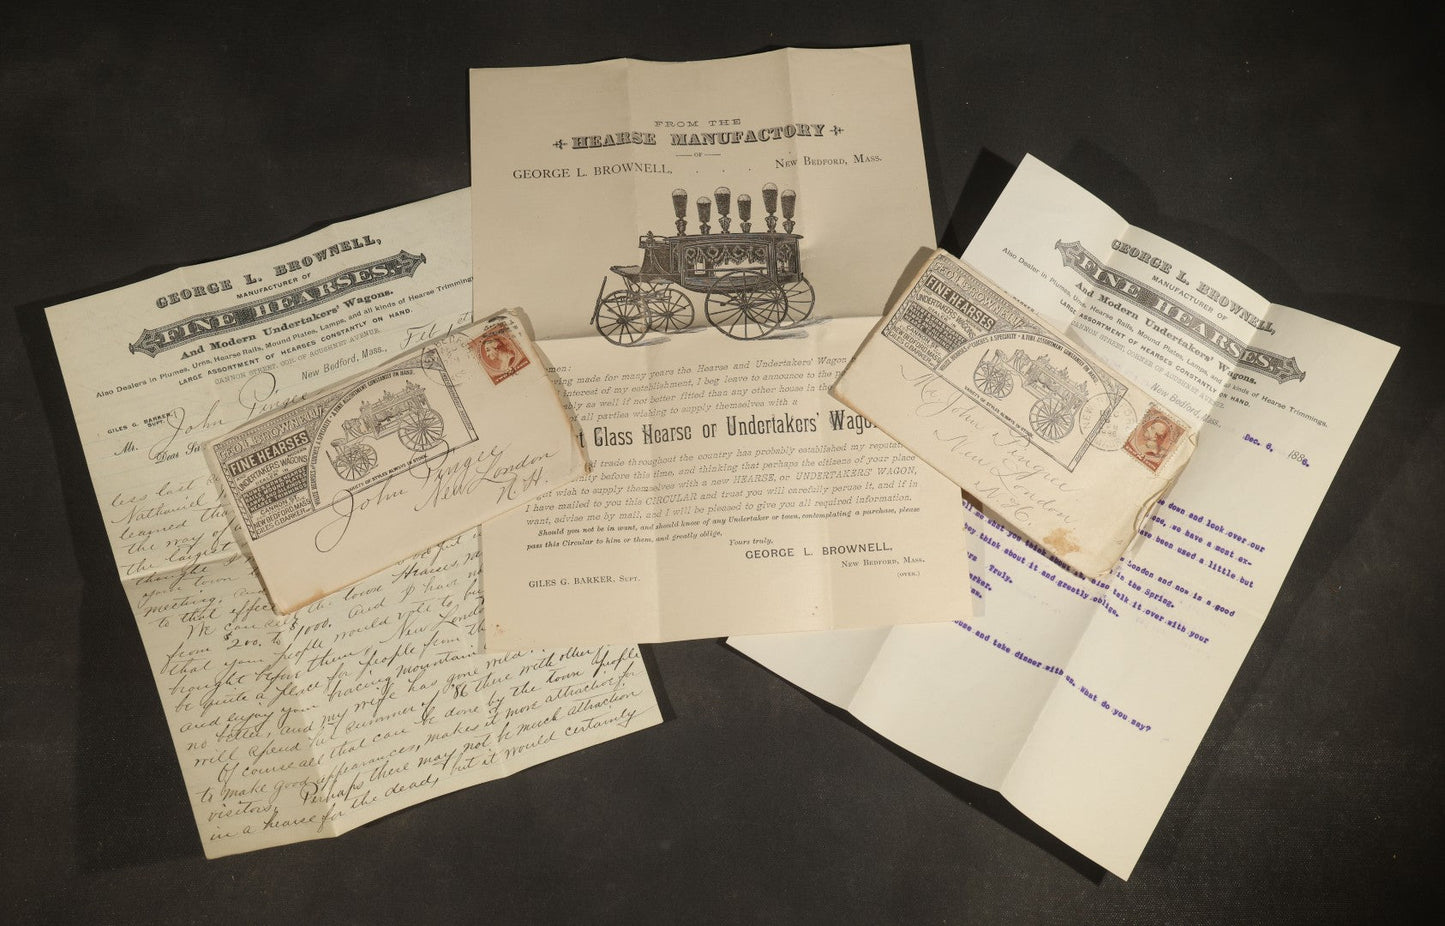 GEORGE L. BROWNELL,
MANUFACTURER OF
FINE HEARSES.
And Modern Undertakers' Wagons.
Also Dealers in Plumes, Urns, Hearse Rails, Mound Plates, Lamps, and all kinds of Hearse Trimmings
LARGE ASSORTMENT OF HEARSES CONSTANTLY ON HAND.
CANNON STREET, COR. OF ACUSHNET AVENUE.
GILES G. BARKER, SUPT.
New Bedford, Mass.,
Mr. John Pingee
Dear Sir
less last
Nathaniel
learned tha
the way of
the largest
thought
your town
meeting, an
to that effec
We can sell the town Hearses,
from $200. to $1000. and I have no
that your people would vote to bu
bought before them, New Londo
be quite a place for people from th
and enjoy your bracing mountain
no better, and my wife has gone wild
will spend her summer of '86 there with other
Of course all that can be done by the town people
to make good appearances, makes it more attractive for
visitors. Perhaps there may not be much attraction
in a hearse for the dead, but it would certainly
FROM THE
HEARSE MANUFACTORY
OF
GEORGE L. BROWNELL, . . . NEW BEDFORD, MASS.
men:
ving made for many years the Hearse and Undertakers' Wagon
l interest of my establishment, I beg leave to announce to the p
ably as well if not better fitted than any other house in the
or all parties wishing to supply themselves with a
t Class Hearse or Undertakers' Wago
l trade throughout the country has probably established my reputat
unity before this time, and thinking that perhaps the citizens of your place
wish to supply themselves with a new HEARSE, or UNDERTAKERS' WAGON,
I have mailed to you this CIRCULAR and trust you will carefully peruse it, and if in
want, advise me by mail, and I will be pleased to give you all required information.
Should you not be in want, and should know of any Undertaker or town, contemplating a purchase, please
pass this Circular to him or them, and greatly oblige,
Yours truly,
GEORGE L. BROWNELL,
NEW BEDFORD, MASS.
GILES G. BARKER, SUPT.
(OVER.)
GEO. L. BROWNELL
FINE HEARSES
UNDERTAKERS WAGONS
CANNON ST.
NEW BEDFORD, MASS.
GILES G. BARKER
A FINE ASSORTMENT CONSTANTLY ON HAND
VARIETY OF STYLES ALWAYS IN STOCK
John Pingee
New London
N.H.
GEO. L. BROWNELL
FINE HEARSES
UNDERTAKERS WAGONS
CANNON ST.
NEW BEDFORD, MASS.
GILES G. BARKER
A SPECIALTY • A FINE ASSORTMENT CONSTANTLY ON
VARIETY OF STYLES ALWAYS IN STOCK
Mr. John Pingee
New London
N.H.
GEORGE L. BROWNELL,
MANUFACTURER OF
FINE HEARSES.
And Modern Undertakers' Wagons.
Also Dealer in Plumes, Urns, Hearse Rails, Mound Plates, Lamps, and all kinds of Hearse Trimmings.
LARGE ASSORTMENT OF HEARSES CONSTANTLY ON HAND.
CANNON STREET, CORNER OF ACUSHNET AVENUE
New Bedford, Mass. Dec. 6, 1886.
e down and look over our
se, we have a most ex-
ave been used a little but
London and now is a good
in the Spring.
ell me what you think about it, also talk it over with your
hey think about it and greatly oblige.
rs Truly.
arker.
ouse and take dinner with us. What do you say?